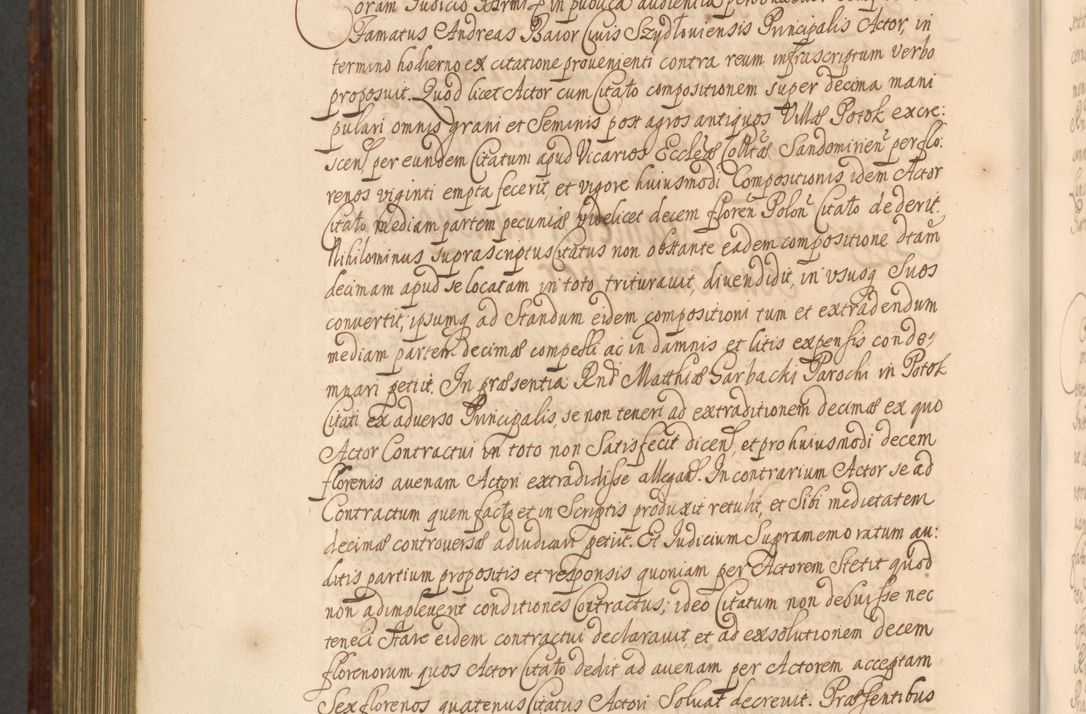 oram Iudicio in publica audientia
Famatus Andreas Baior Civis Szydłoviensis Principalis Actor, in
termino hodierno ex citatione provenienti contra reum infrascriptum verbo
proposuit. Quod licet Actor cum Citato compositionem super decima mani
pulari omnis grani et Seminis post agros antiquos Villæ Potok excre:
scen͂, per eundem Citatum apud Vicarios Eccleæ Colltæ Sandomirien͂ per flo:
renos viginti empta fecerit, et vigore huiusmodi Compositionis idem Actor
Citato mediam partem pecuniæ videlicet decem floren͂ Polon͂ Citato dederit.
Nihilominus suprascriptus Citatus non obstante eadem compositione dtam͂
decimam apud se locatam in toto trituravit, divendidit, in ususq Suos
convertit, ipsumq ad Standum eidem compositioni tum et extradendum
mediam partem decimæ compelli ac in damnis et litis expensis conde-
mnari petiit. In præsentia Rnd͂ Matthiæ Garbacki Parochi in Potok
Citati ex adverso Principalis, se non teneri ad extraditionem decimæ ex quo
Actor Contractui in toto non Satisfecit dicen͂, et pro huiusmodi decem
florenis avenam Actori extradidisse allegan͂. In contrarium Actor se ad
Contractum quem facto et in Scriptis produxit retulit, et Sibi medietatem
decimæ controversæ adiudicari petiit. Et Iudicium Supramemoratum au:
ditis partium propositis et responsis quoniam per Actorem Stetit quod
non adimpleverit conditiones Contractus; ideo Citatum non debuisse nec
teneri Stare eidem contractui declaravit, et ad exsolutionem decem
florenorum quos Actor Citato dedit ad avenam per Actorem acceptam
Sex florenos quatenus Citatus Actori Solvat decrevit. Præsentibus